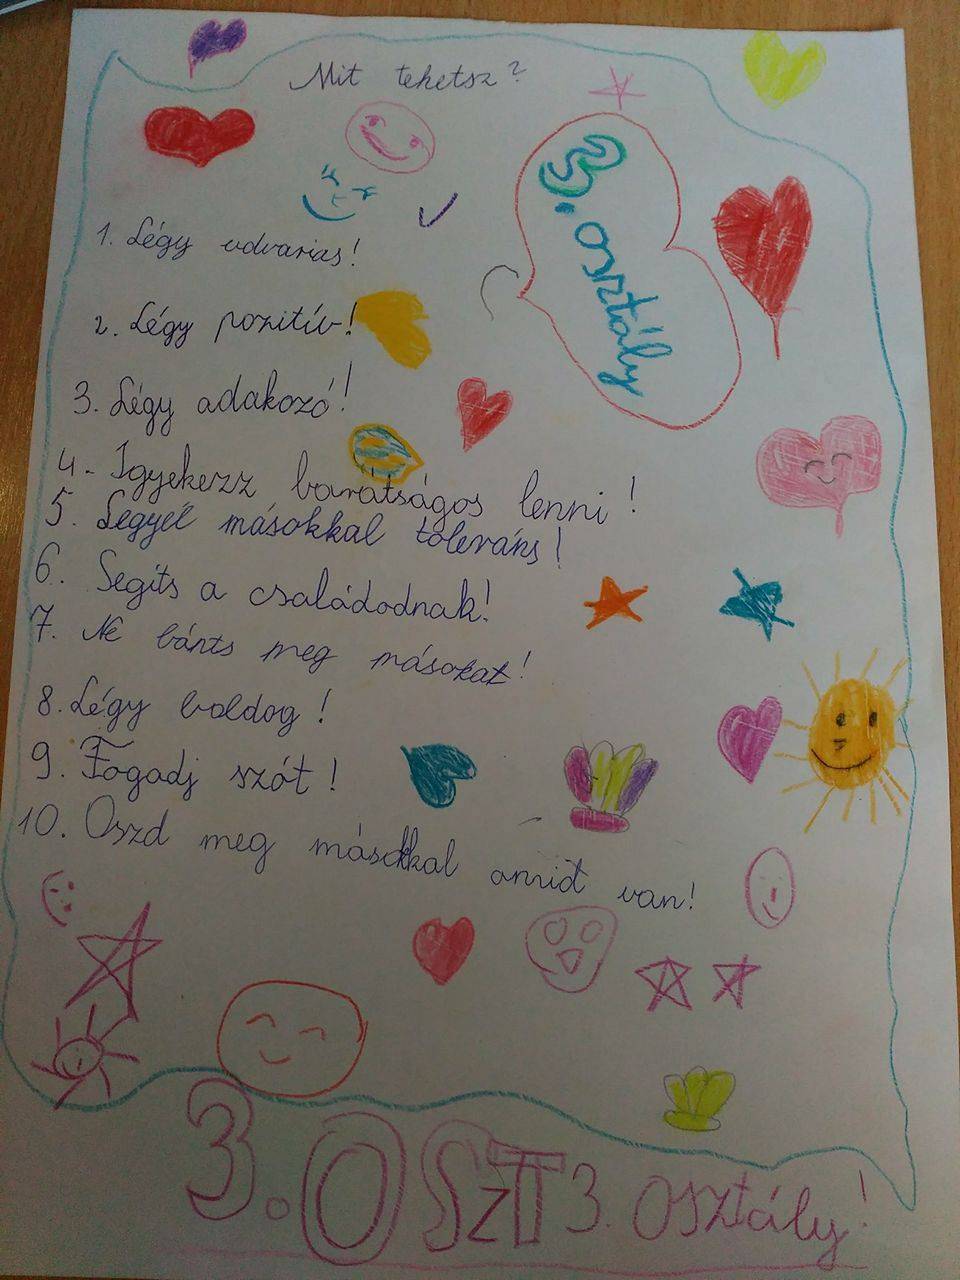 Mit tehetsz?
3. osztály
1. Légy udvarias!
2. Légy pozitív!
3. Légy adakozó!
4. Igyekezz barátságos lenni!
5. Legyél másokkal toleráns!
6. Segíts a családodnak!
7. Ne bánts meg másokat!
8. Légy boldog!
9. Fogadj szót!
10. Oszd meg másokkal amid van!
3. OSZT 3. osztály!